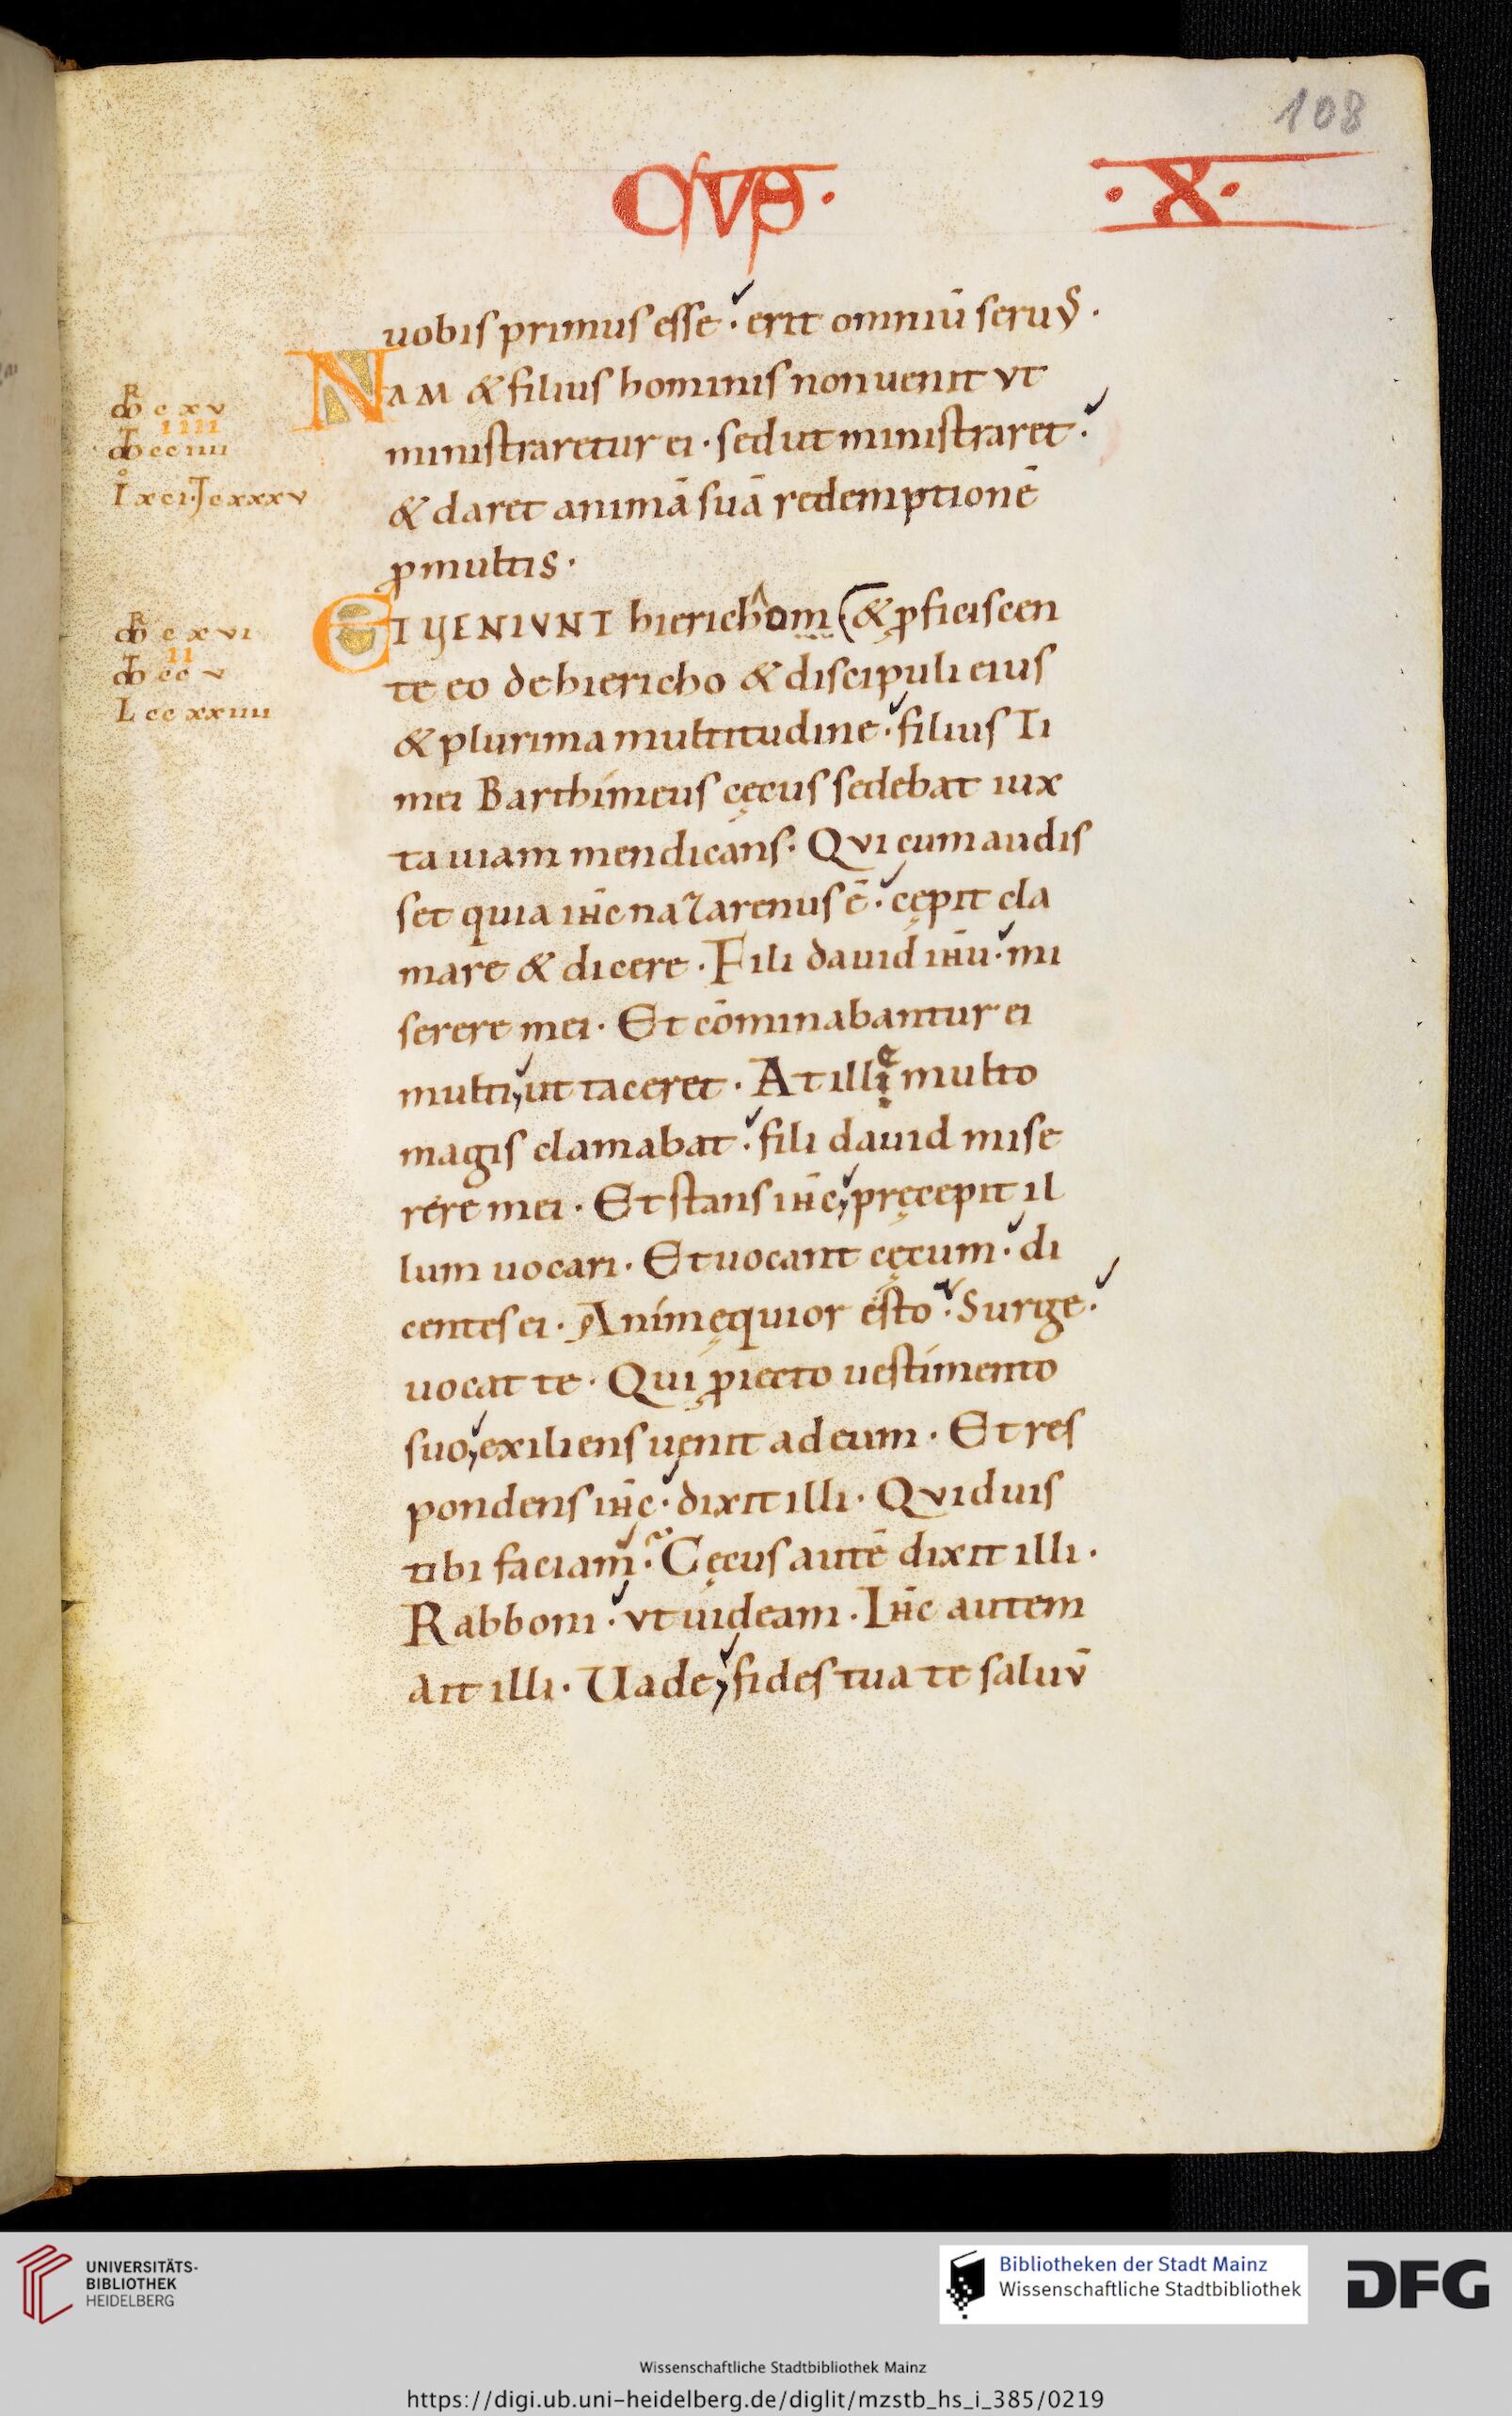 108
CVS ·
· X ·
uobis primus esse · erit omniū seruꝰ ·
NAM & filius hominis non uenit vt
ministraretur ei · sed ut ministraret ·
& daret animā suā redemptionē
ꝓ multis ·
ET VENIVNT hierichom & ꝓficiscen
te eo de hiericho & discipuli eius
& plurima multitudine · filius Ti
mei Barthimeus cęcus sedebat iux
ta uiam mendicans · Qui cum audis
set quia ihc̄ nazarenus ē · cępit cla
mare & dicere · Fili dauid ihū · mi
serere mei · Et cōminabantur ei
multi, ut taceret · At illi^e multo
magis clamabat · fili dauid mise
rere mei · Et stans ihc̄, pręcepit il
lum uocari · Et uocant cęcum · di
centes ei · Animęquior esto · Surge ·
uocat te · Qui ꝓiecto uestimento
suo, exiliens uenit ad eum · Et res
pondens ihc̄ · dixit illi · Quid uis
tibi faciam · Cęcus autē dixit illi ·
Rabboni · vt uideam · Ihc̄ autem
ait illi · Uade, fides tua te saluū
R
cxv
IIII
cciiii
I xci · J cxxxv
R
cxvi
II
ccv
L ccxxiiii
UNIVERSITÄTS-
BIBLIOTHEK
HEIDELBERG
Bibliotheken der Stadt Mainz
Wissenschaftliche Stadtbibliothek
DFG
Wissenschaftliche Stadtbibliothek Mainz
https://digi.ub.uni-heidelberg.de/diglit/mzstb_hs_i_385/0219